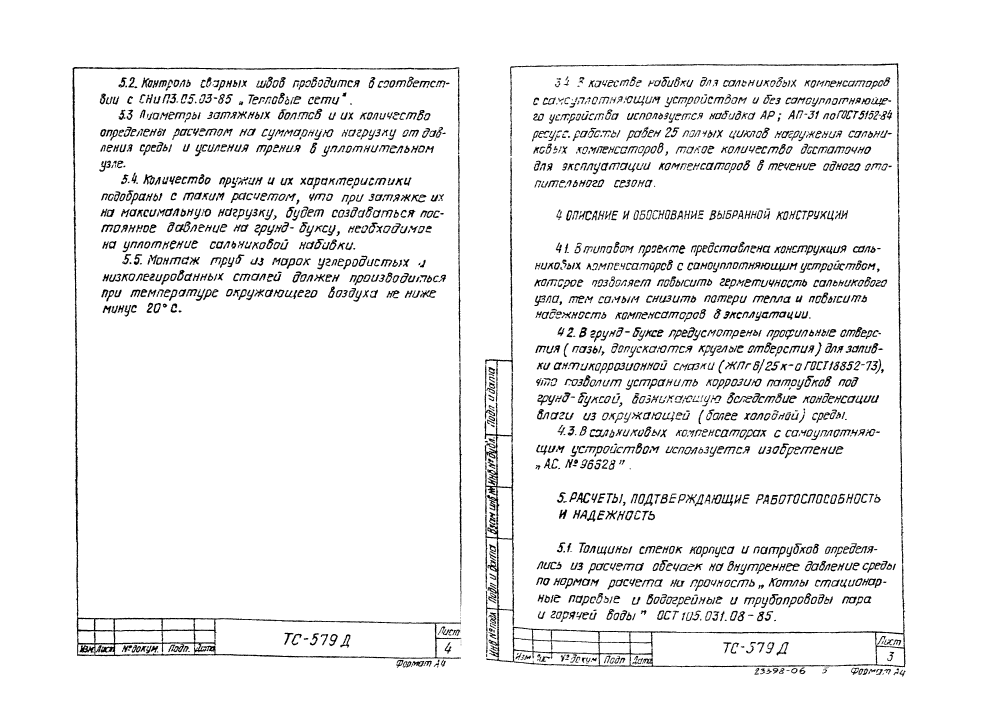 5.2. Контроль сварных швов проводится в соответст-
вии с СНиП3.05.03-85 „Тепловые сети".
5.3 Диаметры затяжных болтов и их количество
определены расчетом на суммарную нагрузку от дав-
ления среды и усиления трения в уплотнительном
узле.
5.4. Количество пружин и их характеристики
подобраны с таким расчетом, что при затяжке их
на максимальную нагрузку, будет создаваться пос-
тоянное давление на грунд-буксу, необходимое
на уплотнение сальниковой набивки.
5.5. Монтаж труб из марок углеродистых и
низколегированных сталей должен производиться
при температуре окружающего воздуха не ниже
минус 20°С.
Изм Лист № докум. Подп. Дата
ТС-579 Д
Лист
4
Формат А4
3.4. В качестве набивки для сальниковых компенсаторов
с самоуплотняющим устройством и без самоуплотняюще-
го устройства используется набивка АР; АП-31 по ГОСТ 5152-84
ресурс работы равен 25 полных циклов нагружения сальни-
ковых компенсаторов, такое количество достаточно
для эксплуатации компенсаторов в течение одного ото-
пительного сезона.
4 ОПИСАНИЕ И ОБОСНОВАНИЕ ВЫБРАННОЙ КОНСТРУКЦИИ
4.1. В типовом проекте представлена конструкция саль-
никовых компенсаторов с самоуплотняющим устройством,
которое позволяет повысить герметичность сальникового
узла, тем самым снизить потери тепла и повысить
надежность компенсаторов в эксплуатации.
4.2. В грунд-буксе предусмотрены профильные отверс-
тия (пазы, допускаются круглые отверстия) для заливки
ки антикоррозионной смазки (ЖПг в/25 к-о ГОСТ 18852-73),
что позволит устранить коррозию патрубков под
грунд-буксой, возникающую вследствие конденсации
влаги из окружающей (более холодной) среды.
4.3. В сальниковых компенсаторах с самоуплотняю-
щим устройством используется изобретение
„АС. № 96528".
5. РАСЧЕТЫ, ПОДТВЕРЖДАЮЩИЕ РАБОТОСПОСОБНОСТЬ
И НАДЕЖНОСТЬ
5.1. Толщины стенок корпуса и патрубков определя-
лись из расчета обечаек на внутреннее давление среды
по нормам расчета на прочность „Котлы стационар-
ные паровые и водогрейные и трубопроводы пара
и горячей воды" ОСТ 105.031.08-85.
Инв № подл Подп и дата Взам инв № Инв № дубл. Подп и дата
Изм Лист № докум Подп Дата
ТС-579 Д
Лист
3
23598-06 5 Формат А4